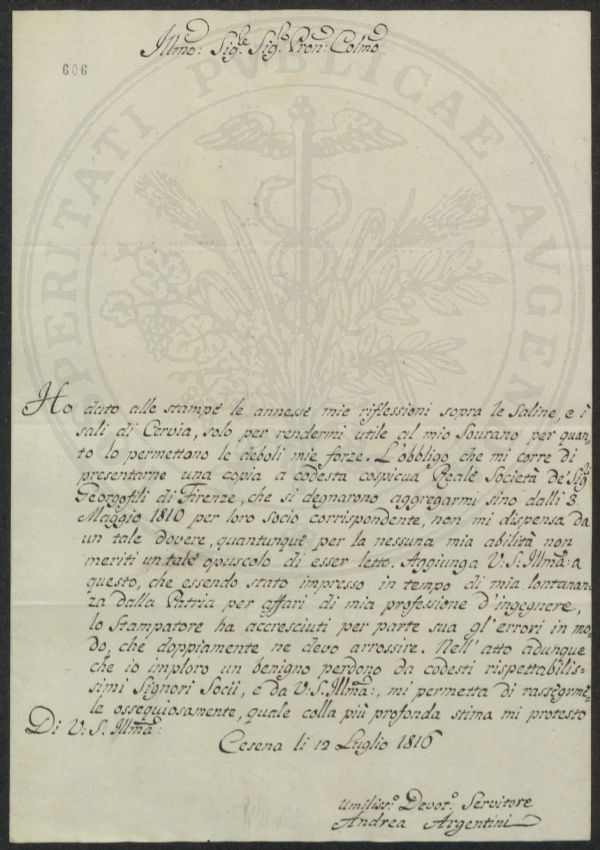 Illmo: Sig.e Sig.e Pron: Colmo
606
PERITATI PUBLICAE AUGEN
Ho dato alle stampe le annesse mie riflessioni sopra le Saline, e i
sali di Cervia, solo per rendermi utile al mio Sovrano per quan-
to lo permettono le deboli mie forze. L'obbligo che mi corre di
presentarne una copia a codesta cospicua Reale Società de' Sigri
Georgofili di Firenze, che si degnarono aggregarmi sino dalli 3
Maggio 1810 per loro socio corrispondente, non mi dispensa da
un tale dovere, quantunque per la nessuna mia abilità non
meriti un tale opuscolo di esser letto. Aggiunga V.S. Illma: a
questo, che essendo stato impresso in tempo di mia lontanan-
za dalla Patria per affari di mia professione d'ingegnere,
lo Stampatore ha accresciuti per parte sua gl'errori in mo-
do, che doppiamente ne devo arrossire. Nell'atto adunque
che io imploro un benigno perdono da codesti rispettabilis-
simi Signori Socii, e da V.S. Illma:, mi permetta di rassegrme-
le ossequiosamente, quale colla più profonda stima mi protesto
Di V.S. Illma:
Cesena li 12 Luglio 1816
Umiliss:o Devot:o Servitore
Andrea Argentini